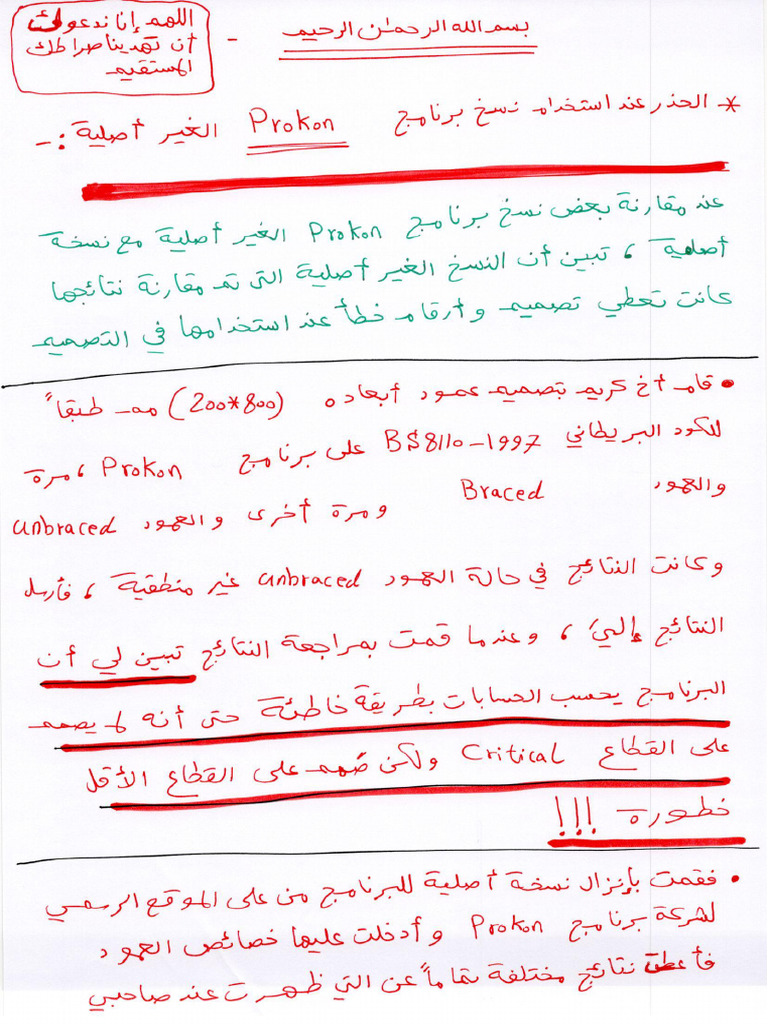 بسم الله الرحمن الرحيم -
اللهم إنا ندعوك
أن تهدينا صراطك
المستقيم
* الحذر عند استخدام نسخ برنامج Prokon الغير أصلية :-
عند مقارنة بعض نسخ برنامج Prokon الغير أصلية مع نسخة
أصلية ، تبين أن النسخ الغير أصلية التى تم مقارنة نتائجها
كانت تعطي تصميم وأرقام خطأ عند استخدامها في التصميم
• قام أخ كريم بتصميم عمود أبعاده (200*800) مم طبقاً
للكود البريطاني BS8110-1997 على برنامج Prokon ، مرة
والعمود Braced ومرة أخرى والعمود unbraced
وكانت النتائج في حالة العمود unbraced غير منطقية ، فأرسل
النتائج إليّ ، وعندما قمت بمراجعة النتائج تبين لي أن
البرنامج يحسب الحسابات بطريقة خاطئة حتى أنه لم يصمم
على القطاع Critical ولكن صُمم على القطاع الأقل
خطورة !!!
• فقمت بإنزال نسخة أصلية للبرنامج من على الموقع الرسمي
لشركة برنامج Prokon وأدخلت عليها خصائص العمود
فأعطت نتائج مختلفة تماماً عن التي ظهرت عند صاحبي